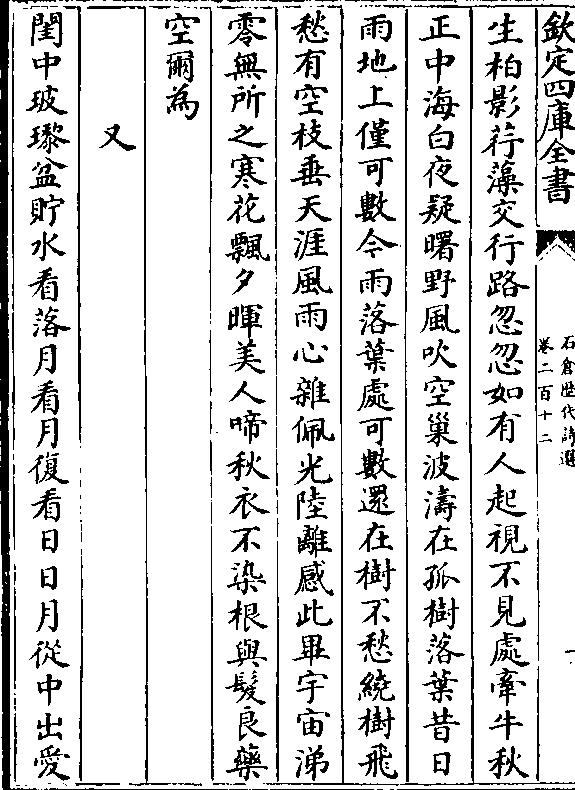 欽定四庫全書
石倉歴代詩選
卷二百十二
一
生柏影荇藻交行路忽忽如有人起視不見處牽牛秋
正中海白夜疑曙野風吹空巢波濤在孤樹落葉昔日
雨地上僅可數今雨落葉處可數還在樹不愁繞樹飛
愁有空枝垂天涯風雨心雜佩光陸離感此畢宇宙涕
零無所之寒花飄夕暉美人啼秋衣不染根與髮良藥
空爾為
又
閨中玻瓈盆貯水看落月看月復看日日月從中出愛